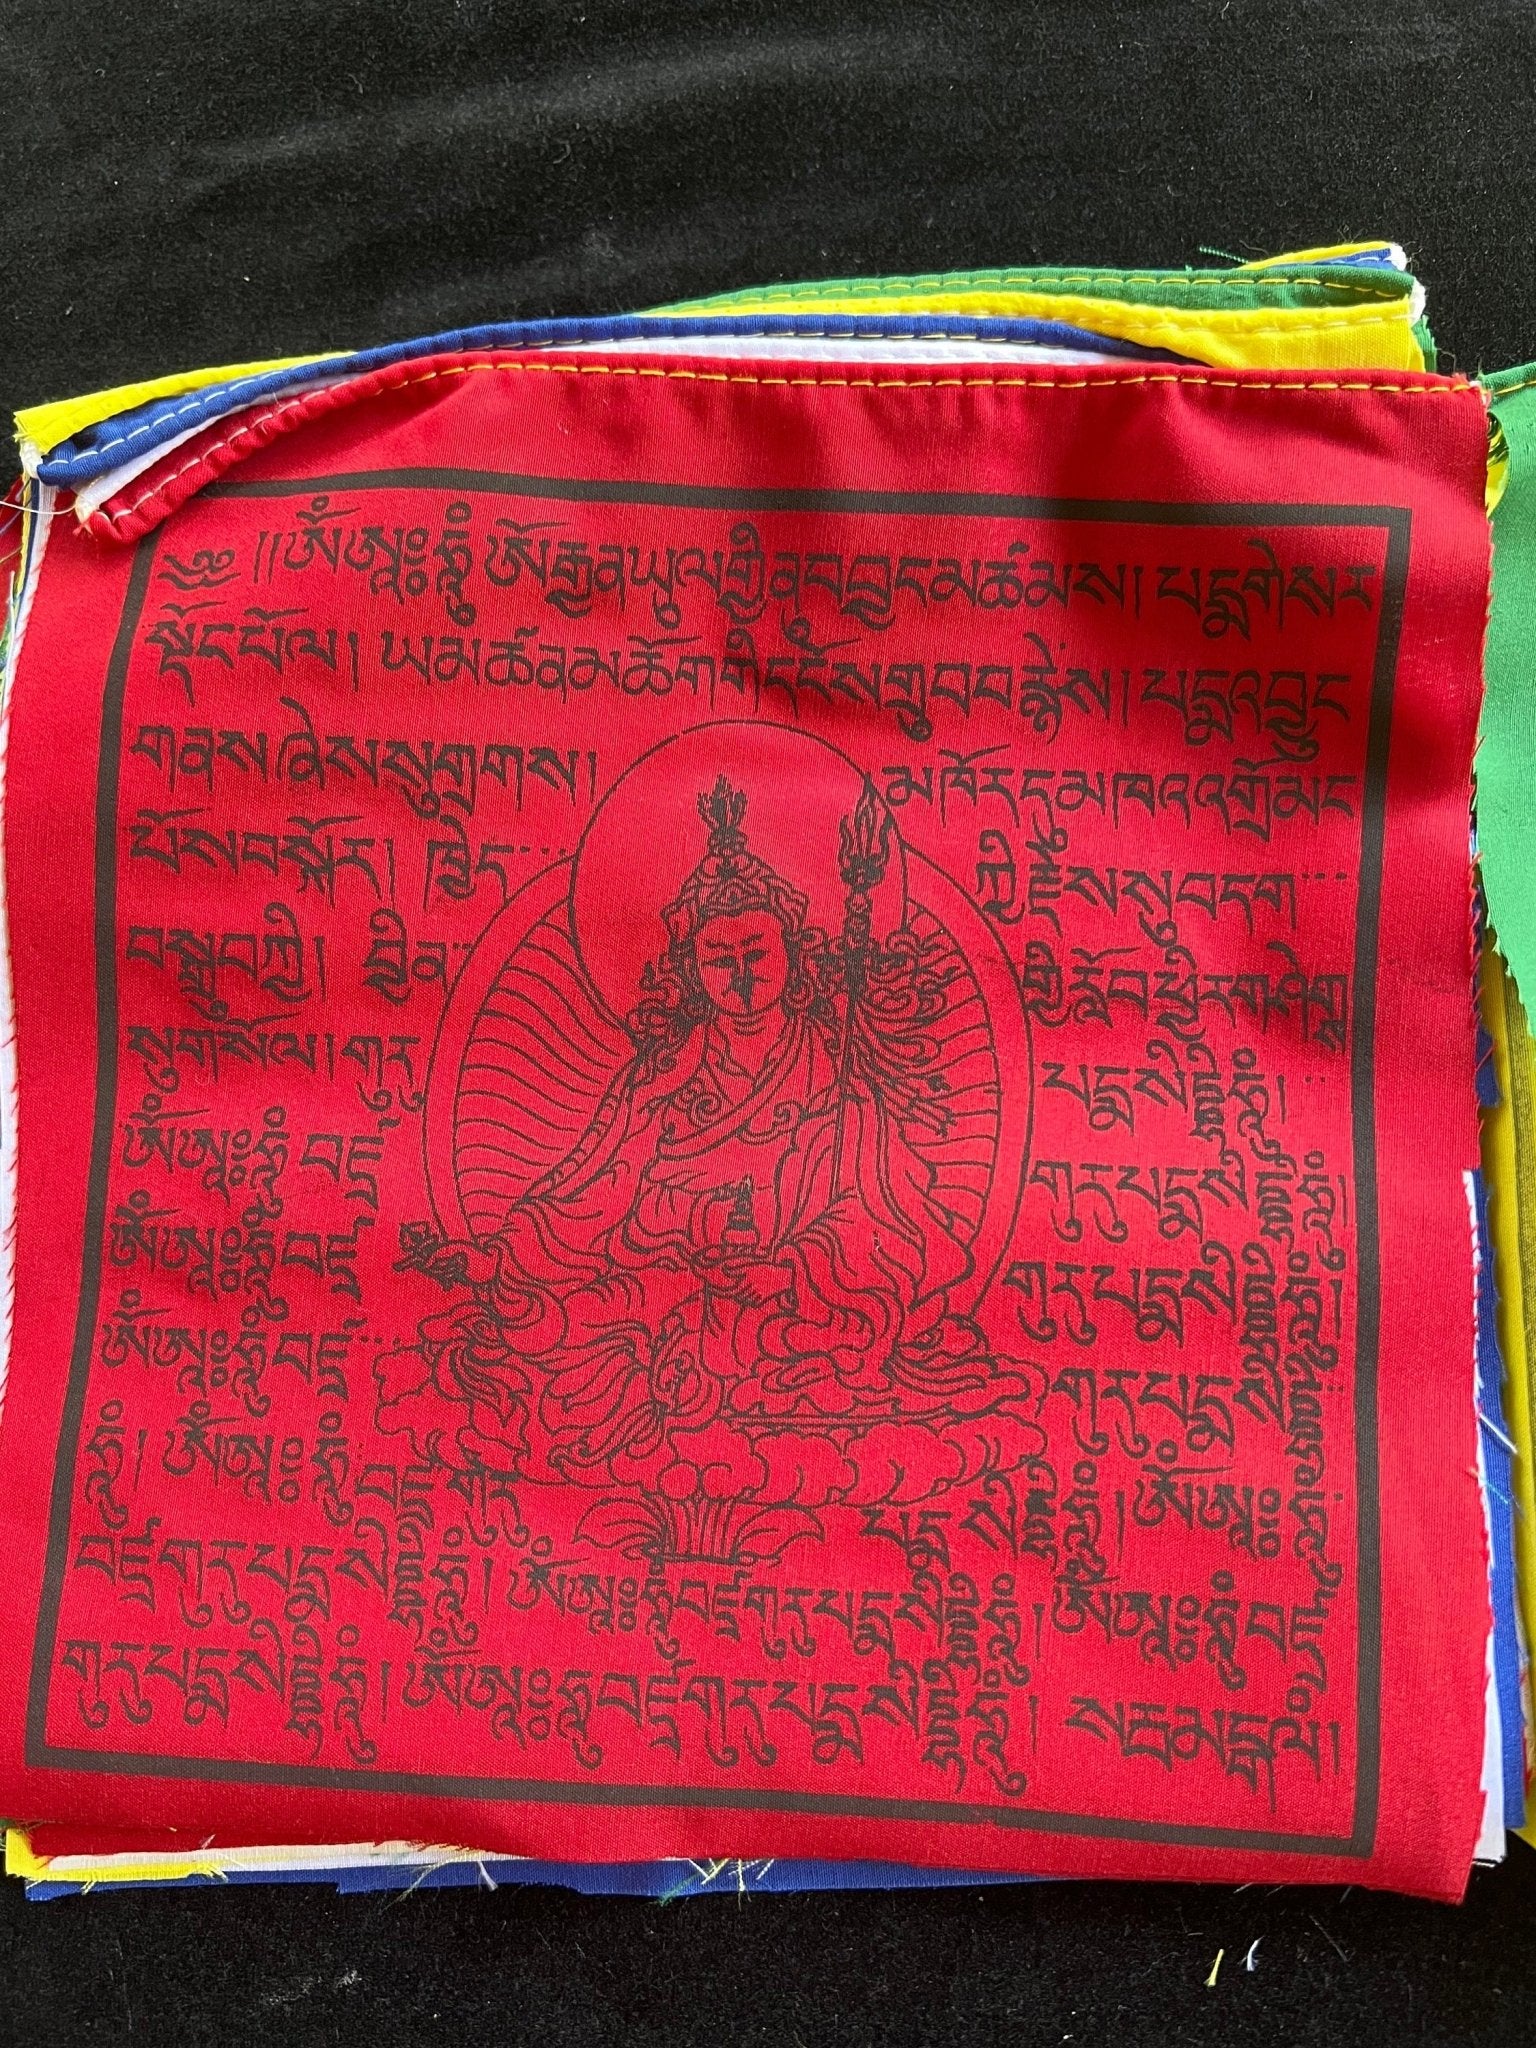 ༄༅། །ཨོཾ་ཨཱཿཧཱུྃ ཨོ་རྒྱན་ཡུལ་གྱི་ནུབ་བྱང་མཚམས། པདྨ་གེ་སར
སྡོང་པོ་ལ། ཡ་མཚན་མཆོག་གི་དངོས་གྲུབ་བརྙེས། པདྨ་འབྱུང
གནས་ཞེས་སུ་གྲགས། མཁའ་འགྲོ་མང
པོས་བསྐོར། ཁྱེད
བསྒྲུབ་ཀྱི། བྱིན
སུ་གསོལ། གུ་རུ པདྨ་སིདྡྷི་ཧཱུྃ།
ཨོཾ་ཨཱཿཧཱུྃ་བཛྲ གུ་རུ་པདྨ་སིདྡྷི་ཧཱུྃ།
ཨོཾ་ཨཱཿཧཱུྃ་བཛྲ གུ་རུ་པདྨ་སིདྡྷི་ཧཱུྃ།
ཨོཾ་ཨཱཿཧཱུྃ་བཛྲ གུ་རུ་པདྨ་སིདྡྷི
ཧཱུྃ། ཨོཾ་ཨཱཿཧཱུྃ་བཛྲ་གུ་རུ པདྨ་སིདྡྷི་ཧཱུྃ། ཨོཾ་ཨཱཿཧཱུྃ
བཛྲ་གུ་རུ་པདྨ་སིདྡྷི་ཧཱུྃ། ཨོཾ་ཨཱཿཧཱུྃ་བཛྲ་གུ་རུ་པདྨ་སིདྡྷི་ཧཱུྃ། ཨོཾ་ཨཱཿཧཱུྃ་བཛྲ
གུ་རུ་པདྨ་སིདྡྷི་ཧཱུྃ། ཨོཾ་ཨཱཿཧཱུྃ་བཛྲ་གུ་རུ་པདྨ་སིདྡྷི་ཧཱུྃ། སརྦ་མངྒ་ལཾ།